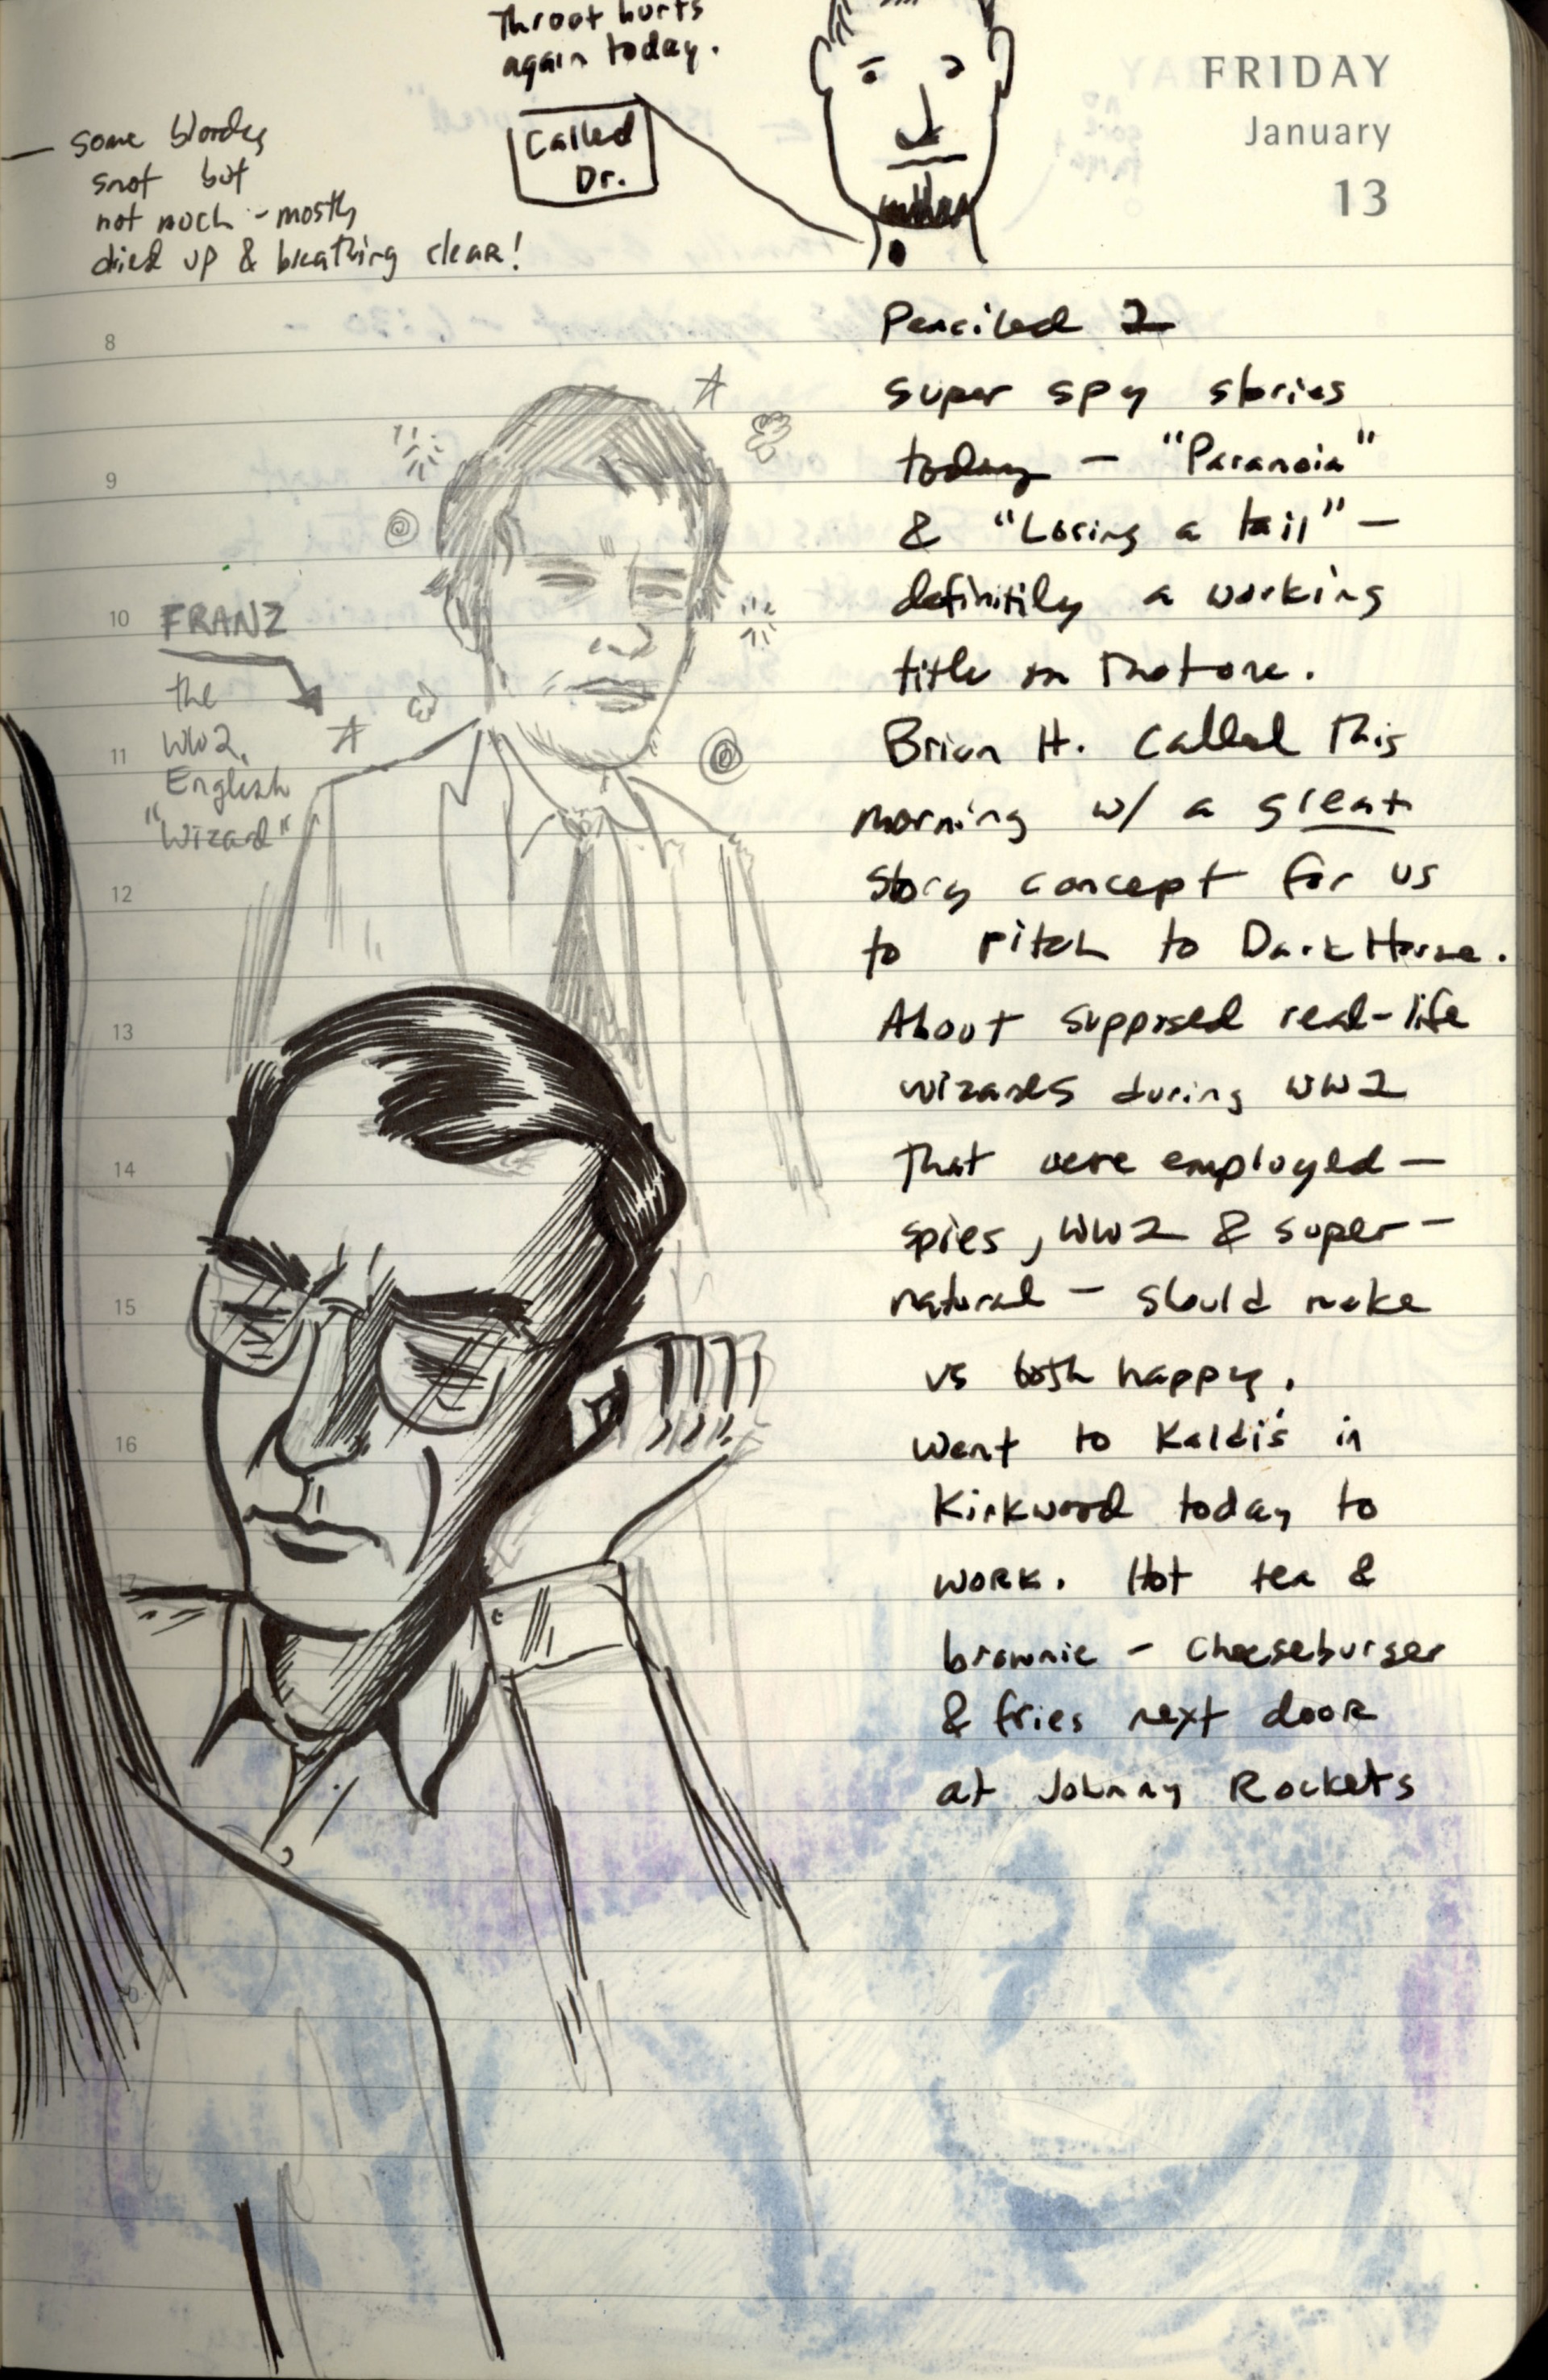 Throat hurts
again today.
Called
Dr.
FRIDAY
January
13
— some bloody
snot but
not much - mostly
dried up & breathing clear!
8
9
10
11
12
13
14
15
16
17
20
FRANZ
the
WW2,
English
"Wizard"
Penciled 2
super spy stories
today — "Paranoia"
& "Losing a tail" —
definitily a working
title on that one.
Brian H. called this
morning w/ a great
story concept for us
to pitch to Dark Horse.
About supposed real-life
wizards during WW2
that were employed —
spies, WW2 & super-
natural — should make
us both happy.
Went to Kaldi's in
Kirkwood today to
work. Hot tea &
brownie — cheeseburger
& fries next door
at Johnny Rockets